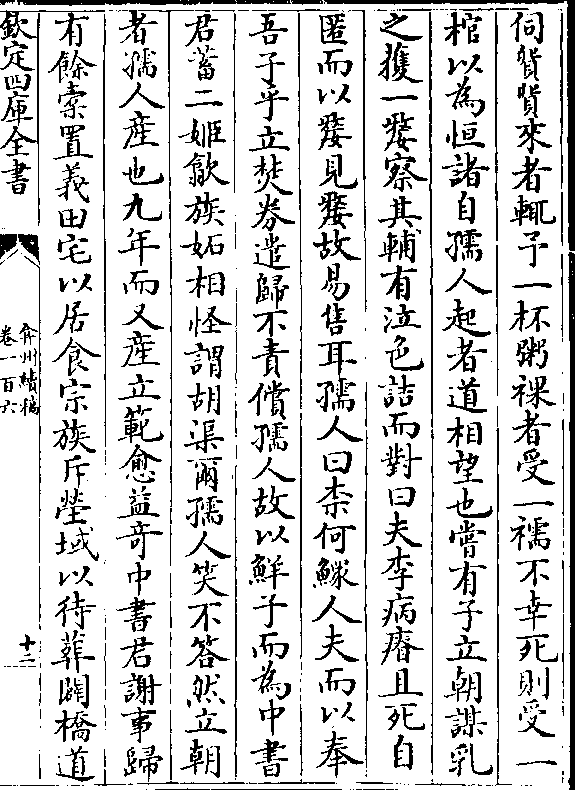 伺貲貲來者輒予一杯粥裸者受一襦不幸死則受一
棺以為恒諸自孺人起者道相望也嘗有子立朝謀乳
之獲一嫠察其輔有泣色詰而對曰夫李病瘠且死自
匿而以嫠見嫠故易售耳孺人曰柰何鰥人夫而以奉
吾子乎立焚券遣歸不責償孺人故以鮮子而為中書
君蓄二姬歙族妬相怪謂胡渠爾孺人笑不答然立朝
者孺人産也九年而又産立範愈益竒中書君謝事歸
有餘橐置義田宅以居食宗族斥塋域以待葬闢橋道
欽定四庫全書
弇州續稿
卷一百六
十二